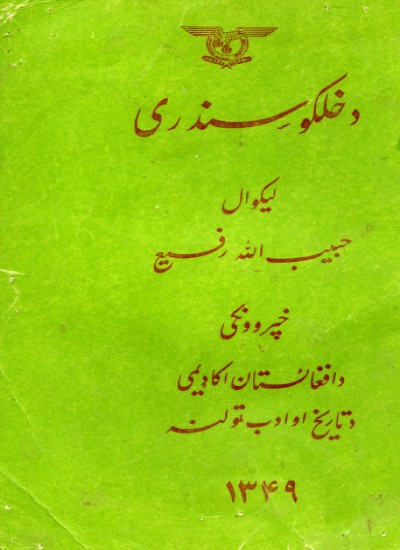 د خلکو سندری
لیکوال
حبیب الله رفیع
خپروونکی
د افغانستان اکادیمی
د تاریخ او ادب ټولنه
۱۳۴۹